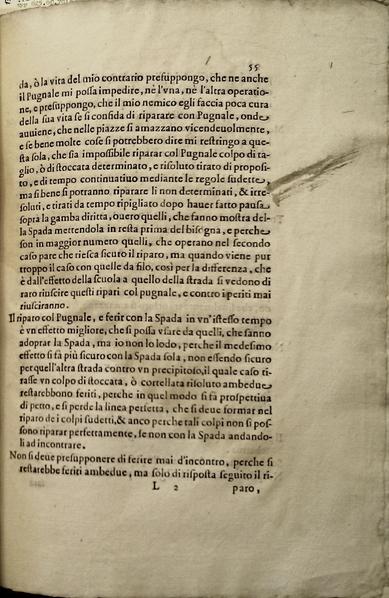 55
da, ò la vita del mio contrario presuppongo, che ne anche
il Pugnale mi possa impedire, nè l'vna, nè l'altra operatio-
ne, e presuppongo, che il mio nemico egli faccia poca cura
della sua vita se si confida di riparare con Pugnale, onde
auuiene, che nelle piazze si amazzano vicendeuolmente,
e se bene molte cose si potrebbero dire mi restringo a que-
sta sola, che sia impossibile riparar col Pugnale colpo di ta-
glio, ò di stoccata determinato, e risoluto tirato di proposi-
to, e di tempo continuatiuo mediante le regole sudette,
ma si bene si potranno riparare li non determinati, & irre-
soluti, e tirati da tempo ripigliato dopo hauer fatto pausa
sopra la gamba diritta, ouero quelli, che fanno mostra del-
la Spada mettendola in resta prima del bisogna, e perche
son in maggior numero quelli, che operano nel secondo
caso pare che riesca sicuro il riparo, ma quando viene pur
troppo il caso con quelle da filo, così per la differenza, che
è dall'effetto della scuola a quello della strada si vedono di
raro riuscire questi ripari col pugnale, e contro i periti mai
riusciranno.
Il riparo col Pugnale, e ferir con la Spada in vn'istesso tempo
è vn effetto migliore, che si possa vsare da quelli, che sanno
adoprar la Spada, ma io non lo lodo, perche il medesimo
effetto si fà più sicuro con la Spada sola, non essendo sicuro
per quell'altra strada contro vn precipitoso, il quale caso ti-
rasse vn colpo di stoccata, ò cortellata risoluto ambedue
restarebbono feriti, perche in quel modo si fà prospettiua
di petto, e si perde la linea perfetta, che si deue formar nel
riparo de i colpi sudetti, & anco perche tali colpi non si pos-
sono riparar perfettamente, se non con la Spada andando-
li ad incontrare.
Non si deue presupponere di ferire mai d'incontro, perche si
restarebbe feriti ambedue, ma solo di risposta seguito il ri-
L 2 paro,